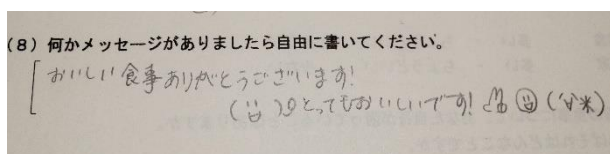 (8) 何かメッセージがありましたら自由に書いてください。
おいしい食事ありがとうございます!
とってもおいしいです!